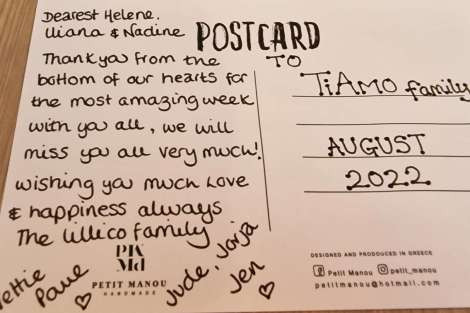 Dearest Helene.
Uiana & Nadine
Thankyou from the
bottom of our hearts for
the most amazing week
with you all, we will
miss you all very much!
wishing you much love
& happiness always
The Lillico family
Paue
Jude, Jorja
Jen
POSTCARD
TO
TiAMO family
AUGUST
2022
PETIT MANOU
HANDMADE
DESIGNED AND PRODOUCED IN GREECE
Petit Manou petit_manou
petitmanou@hotmail.com